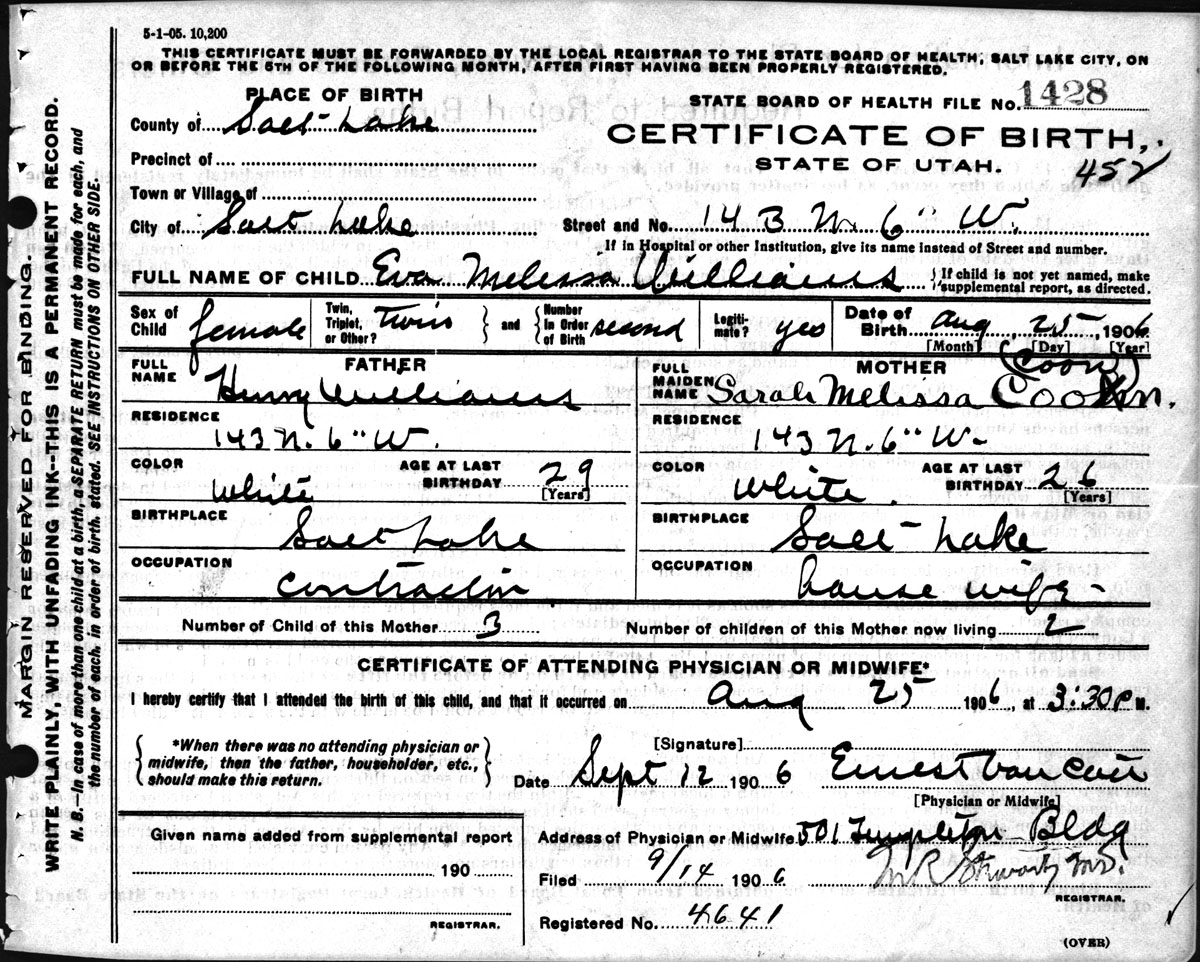 5-1-05. 10,200
THIS CERTIFICATE MUST BE FORWARDED BY THE LOCAL REGISTRAR TO THE STATE BOARD OF HEALTH, SALT LAKE CITY, ON
OR BEFORE THE 5TH OF THE FOLLOWING MONTH, AFTER FIRST HAVING BEEN PROPERLY REGISTERED.
PLACE OF BIRTH
STATE BOARD OF HEALTH FILE No. 1428
County of Salt Lake
CERTIFICATE OF BIRTH,
Precinct of
STATE OF UTAH.
452
Town or Village of
City of Salt Lake Street and No. 143 N. 6" W.
If in Hospital or other Institution, give its name instead of Street and number.
FULL NAME OF CHILD Eva Melissa Williams {If child is not yet named, make supplemental report, as directed.
Sex of Child female Twin, Triplet, or Other? twin } and { Number in Order of Birth second Legiti-mate? yes Date of Birth Aug 25 1906
[Month] [Day] [Year]
FATHER
MOTHER (Coon)
FULL NAME Henry Williams
FULL MAIDEN NAME Sarah Melissa Coon.
RESIDENCE
RESIDENCE
143 N. 6" W.
143 N. 6" W.
COLOR White AGE AT LAST BIRTHDAY 29 [Years]
COLOR White. AGE AT LAST BIRTHDAY 26 [Years]
BIRTHPLACE
BIRTHPLACE
Salt Lake
Salt Lake
OCCUPATION
OCCUPATION
Contractor
house wife-
Number of Child of this Mother 3 Number of children of this Mother now living 2
CERTIFICATE OF ATTENDING PHYSICIAN OR MIDWIFE*
I hereby certify that I attended the birth of this child, and that it occurred on Aug 25 1906, at 3:30 P M.
{*When there was no attending physician or midwife, then the father, householder, etc., should make this return.}
[Signature]
Date Sept 12 1906 Ernest Van Cott
[Physician or Midwife]
Given name added from supplemental report
190
REGISTRAR.
Address of Physician or Midwife 501 Templeton Bldg
Filed 9/14 1906 M.D.
REGISTRAR.
Registered No. 4641
(OVER)
MARGIN RESERVED FOR BINDING.
WRITE PLAINLY, WITH UNFADING INK--THIS IS A PERMANENT RECORD.
N. B.—In case of more than one child at a birth, a SEPARATE RETURN must be made for each, and
the number of each, in order of birth, stated. SEE INSTRUCTIONS ON OTHER SIDE.